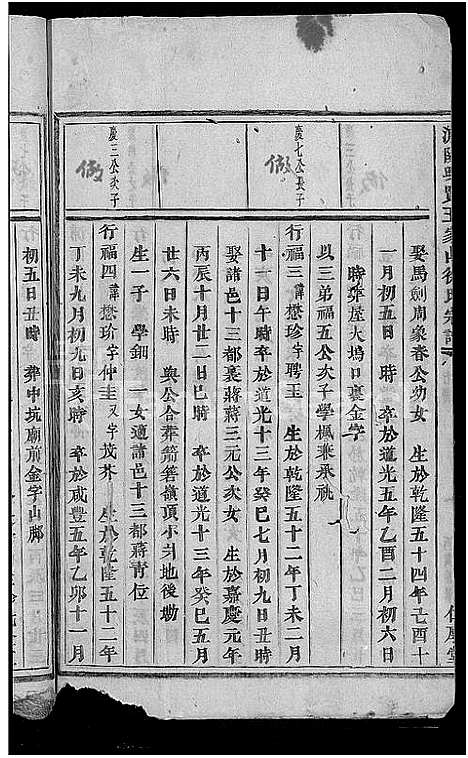 娶馬劍周象春公幼女 生於乾隆五十四年己酉十
一月初五日 卒於道光五年乙酉二月初六日
時葬屋大塢口裏金字
以三弟福五公次子學楓兼承祧
慶七公次子
傚
行福三 諱懋珍字聘玉 生於乾隆五十二年丁未二月
十一日午時 卒於道光十三年癸巳七月初九日丑時
娶諸邑十三都裏蔣蔣三元公次女 生於嘉慶元年
丙辰十月二十二日巳時 卒於道光十三年癸巳五月
廿六日未時 與公合葬箭箬嶺頂小地後塝
生一子 學鈿 一女適諸邑十三都蔣青位
慶三公次子
傚
行福四 諱懋珍字仲圭又字茂芥 生於乾隆五十二年
丁未九月初九日亥時 卒於咸豐五年乙卯十一月
初五日丑時 葬中坑廟前金字山脚